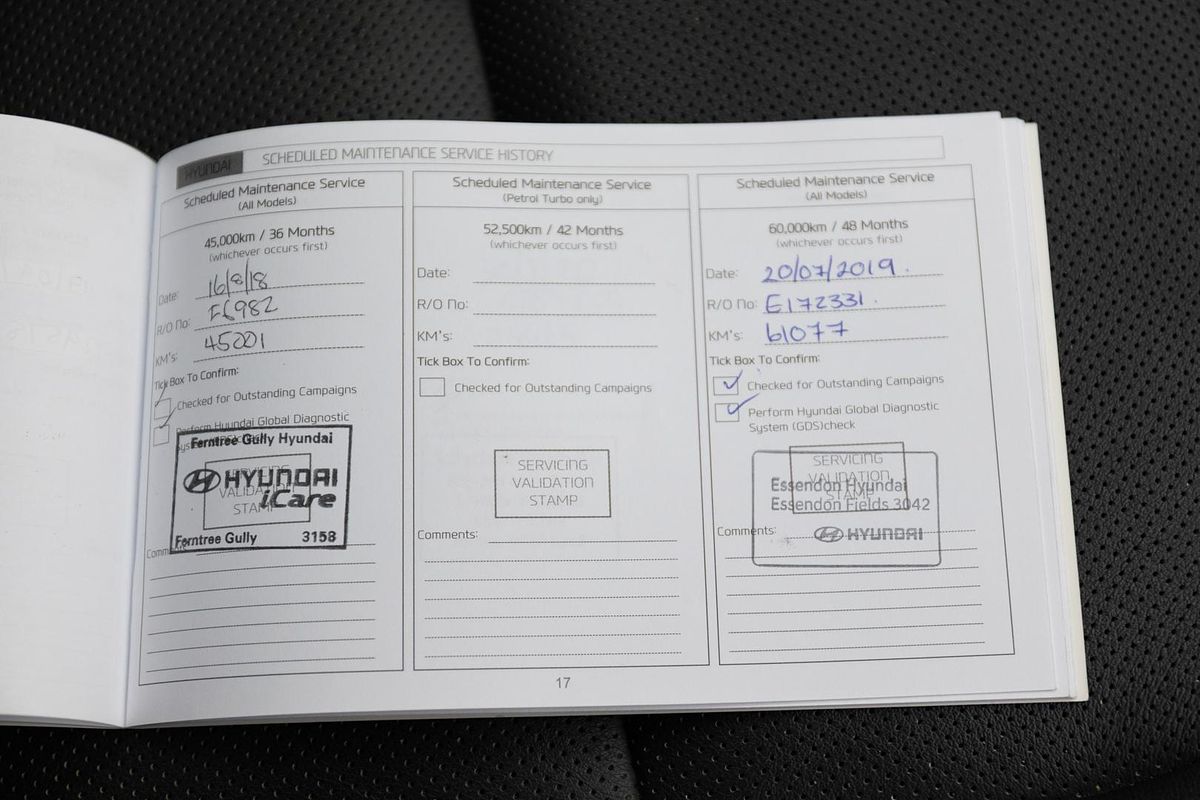 HYUNDAI SCHEDULED MAINTENANCE SERVICE HISTORY
Scheduled Maintenance Service
(All Models)
45,000km / 36 Months
(whichever occurs first)
Date: 16/8/18
R/O No: F6982
KM's: 45201
Tick Box To Confirm:
Checked for Outstanding Campaigns
Perform Hyundai Global Diagnostic
Ferntree Gully Hyundai
SERVICING
VALIDATION
STAMP
HYUNDAI
iCare
Ferntree Gully 3158
Scheduled Maintenance Service
(Petrol Turbo only)
52,500km / 42 Months
(whichever occurs first)
Date:
R/O No:
KM's:
Tick Box To Confirm:
Checked for Outstanding Campaigns
SERVICING
VALIDATION
STAMP
Comments:
Scheduled Maintenance Service
(All Models)
60,000km / 48 Months
(whichever occurs first)
Date: 20/07/2019.
R/O No: E172331.
KM's: 61077
Tick Box To Confirm:
Checked for Outstanding Campaigns
Perform Hyundai Global Diagnostic
System (GDS)check
SERVICING
VALIDATION
STAMP
Essendon Hyundai
Essendon Fields 3042
Comments:
HYUNDAI
17